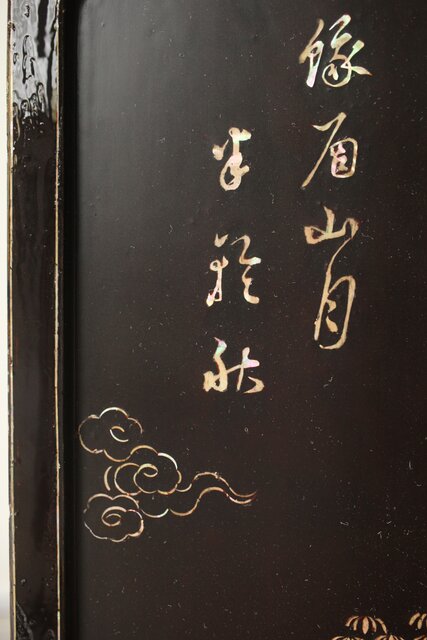 峨眉山月
半輪秋